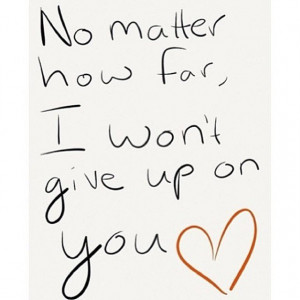 No matter
how far,
I won't
give up on
you